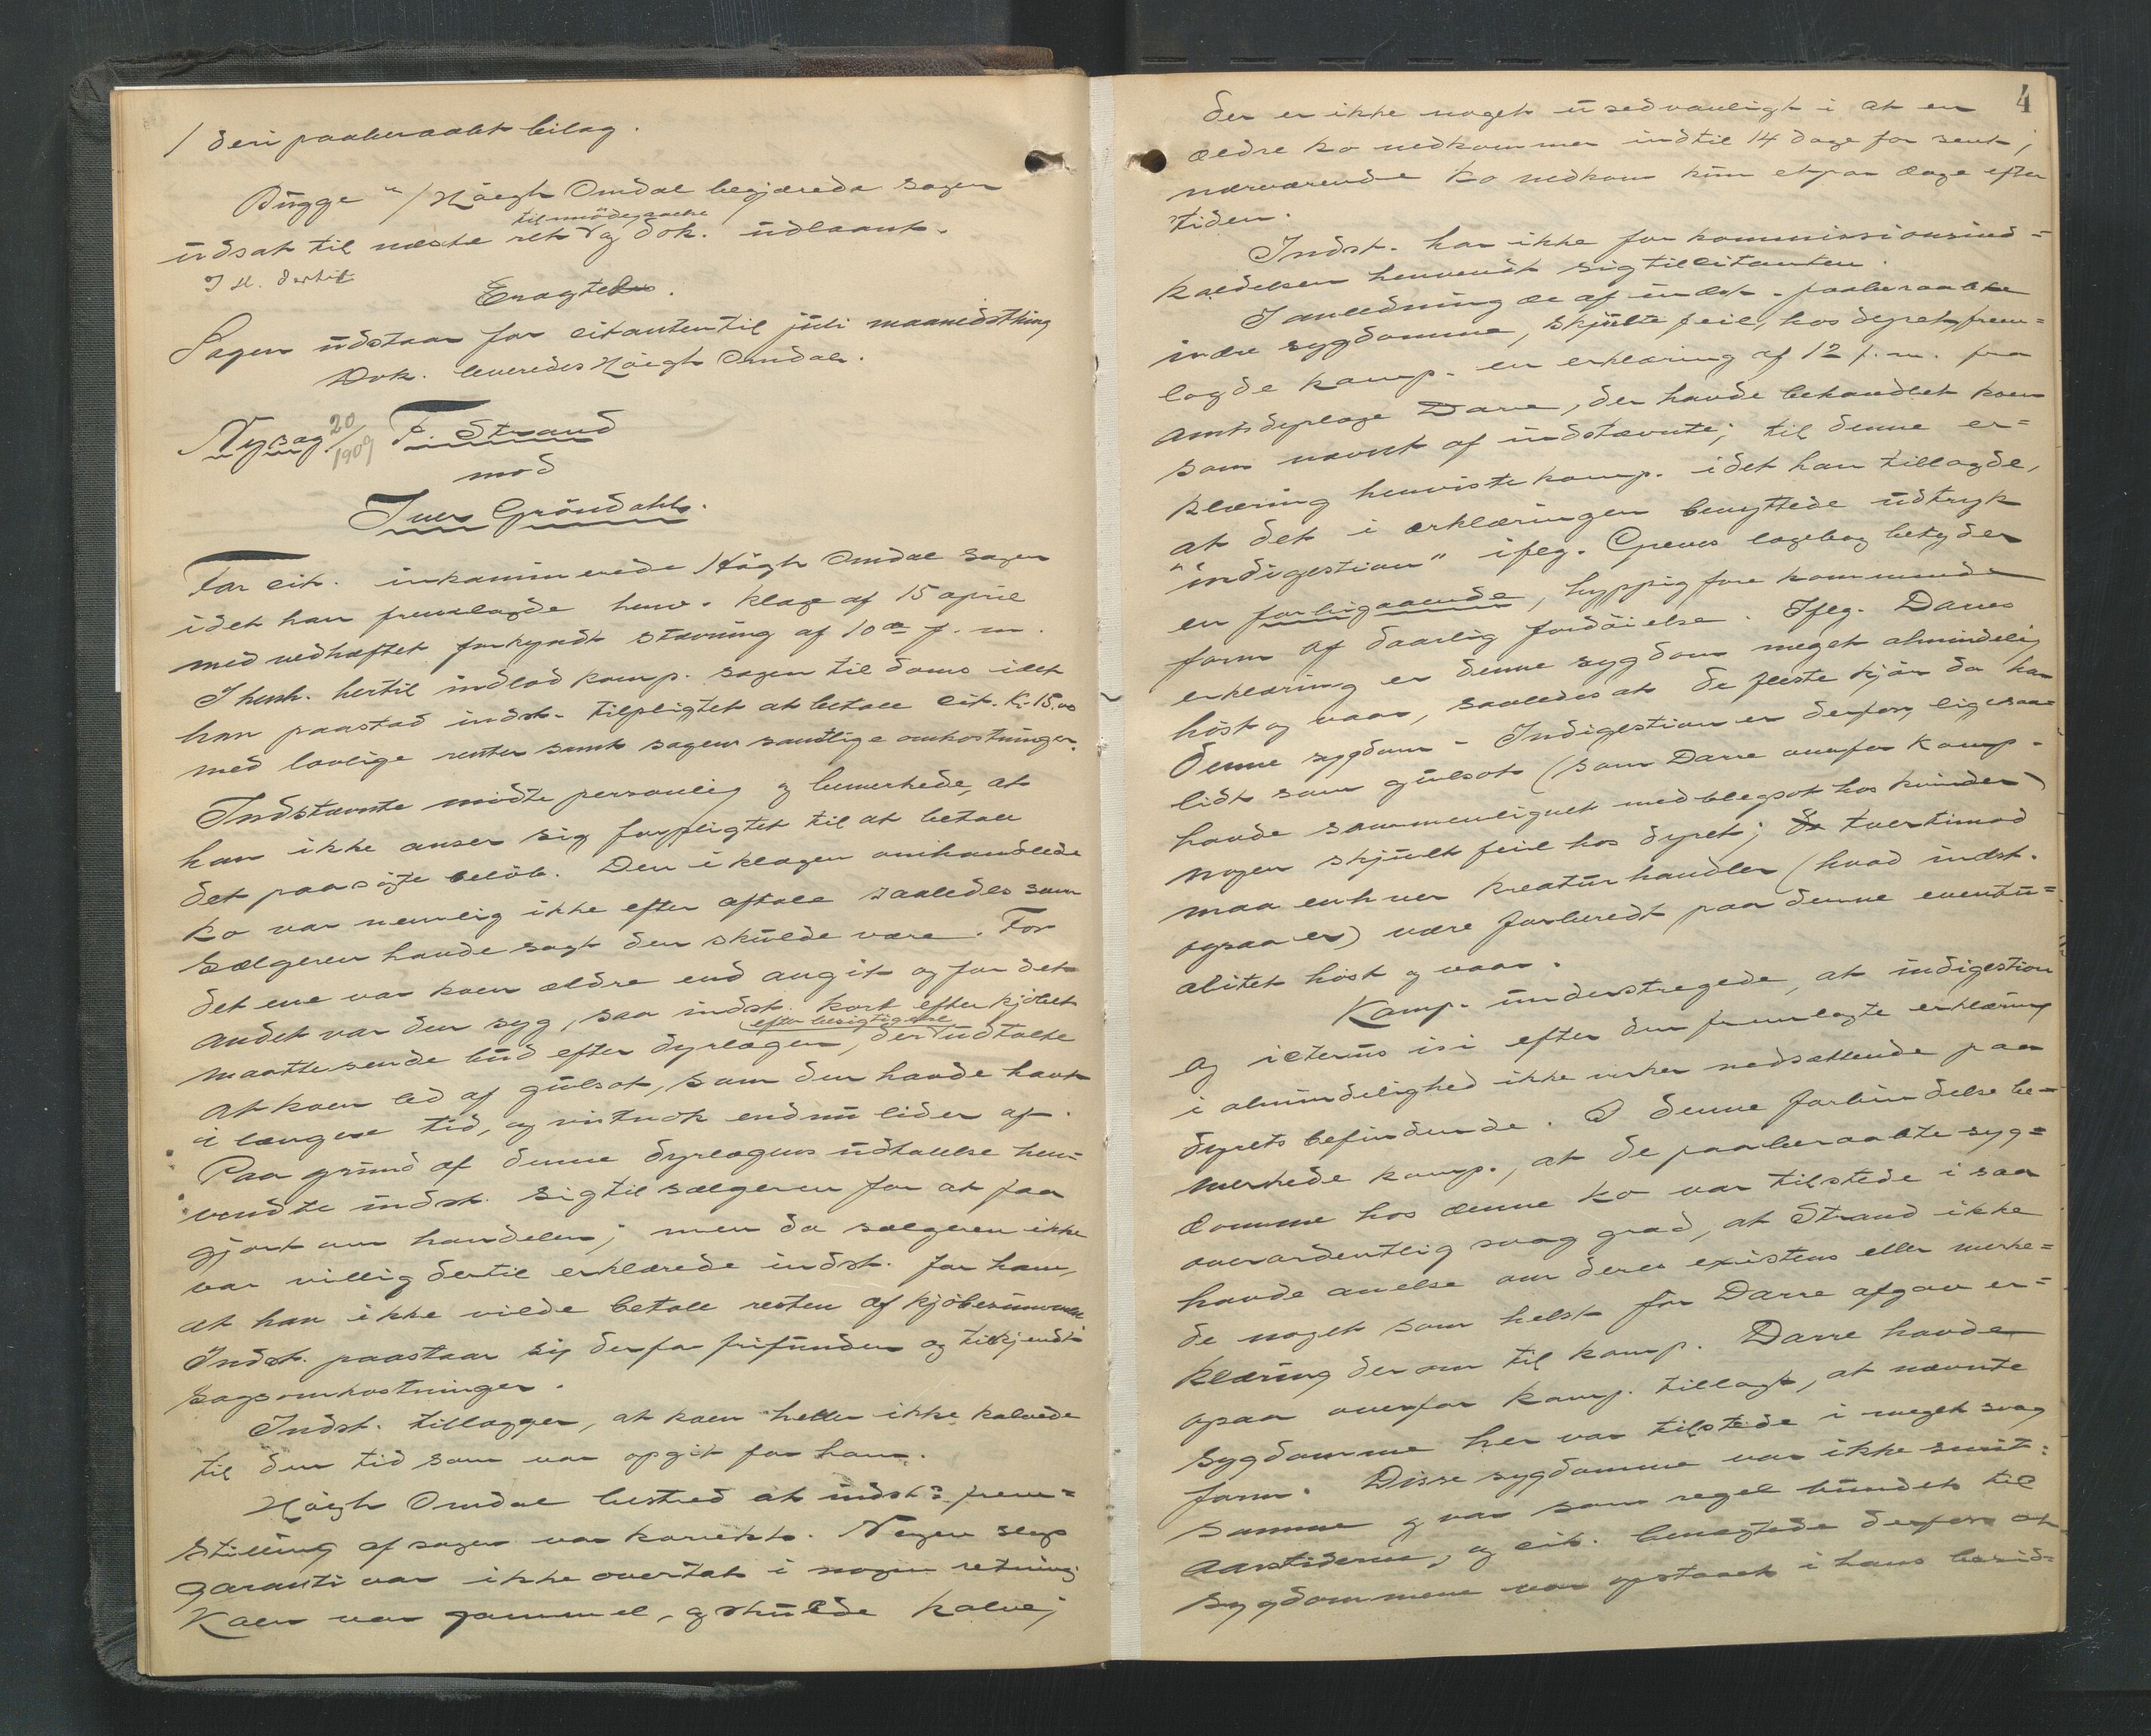 / deri paaberaabt bilag.
Bügge /Höegh Omdal begjærede sagen
til mödegaaelse
udsat til næste ret og dok. udlaant.
I H. dertil
Enagtedes.
Sagen udstaar for citanten til juli maanedsthing
Dok. leveredes Höegh Omdal.
Ny sag 20/1909 F. Strand
mod
Iver Gröndahl.
For cit. inkaminerede Höegh Omdal sagen
idet han fremlagde henv. klage af 15 april
med vedhæftet forkyndt stævning af 10de f. m.
I henh. hertil indlod komp. sagen til doms idet
han paastod indst. tilpligtet at betale cit. Kr. 15.00
med lovlige renter samt sagens samtlige omkostninger.
Indstævnte mödte personlig og bemerkede, at
han ikke anser sig forpligtet til at betale
det paasögte belöb. Den i klagen omhandlede
ko var nemlig ikke efter aftale saaledes som
Sælgeren havde sagt den skulde være. For
det ene var koen ældre end angit og for det
andet var den syg, saa indst. kort efter kjöbet
efter besigtigelse
maatte sende bud efter dyrlægen, der udtalte
at koen led af gulsot, som den havde havt
i længere tid, og vistnok endnu lider af.
Paa grund af denne dyrlægens udtalelse hen-
vendte indst. sig til sælgeren for at faa
gjort om handelen; men da sælgeren ikke
var villig dertil erklærede indst. for ham,
at han ikke vilde betale resten af kjöbesummen
Indst. paastaar sig derfor frifunden og tilkjendt
Sagsomkostninger.
Indst. tillægger, at koen heller ikke kalvede
til den tid som var opgit for ham.
Höegh Omdal bestred at indst:s frem=
stilling af sagen var korrekt. Nogen slags
garanti var ikke overtat i nogen retning.
Koen var gammel, og skulde kalve;
4
Der er ikke noget usedvanligt i at en
ældre ko nedkommer indtil 14 dage for sent;
nærværende ko nedkom kun et par dage efter
tiden.
Indst. har ikke för kommissionsind=
kaldelsen henvendt sig til citanten.
I anledning de af indst. paaberaabte
indre sygdomme, skjulte feil, hos dyret, frem=
lagde komp. en erklæring af 12 f. m. fra
amtsdyrlæge Darre, der havde behandlet koen
som nævnt af indstævnte; til denne er=
klæring henviste komp. idet han tillagde,
at det i erklæringen benyttede udtryk
"indigestion" ifög. Greves lægebog betyder
en forbigaaende, hyppig forekommende
form af daarlig fordöielse. Ifög. Darres
erklæring er denne sygdom meget almindelig
höst og vaar, saaledes at de fleste kjör da har
denne sygdom - Indigestion er derfor, ligesaa=
lidt som gulsot (som Darre overfor komp.
havde sammenlignet med blegsot hos kvinder)
nogen skjult feil hos dyret; tvertimod
maa enhver kreaturhandler (hvad indst.
ogsaa er) være forberedt paa denne eventu=
alitet höst og vaar.
Komp. understregede, at indigestion
og icterus isi efter den fremlagte erklæring
i almindelighed ikke virker nedsættende paa
dyrets befindende. I denne forbindelse be=
merkede komp., at de paaberaabte syg=
domme hos denne ko var tilstede i saa
overordentlig svag grad, at Strand ikke
havde anelse om deres existens eller merke=
de noget som helst för Darre afgav er=
klæring derom til komp. Darre havde
ogsaa overfor komp. tillagt, at nævnte
sygdomme her var tilstede i meget svag
form. Disse sygdomme var ikke smit=
somme og var som regel bundet til
aarstiderne, og cit. benegtede derfor at
sygdommene var opstaaet i hans besid=